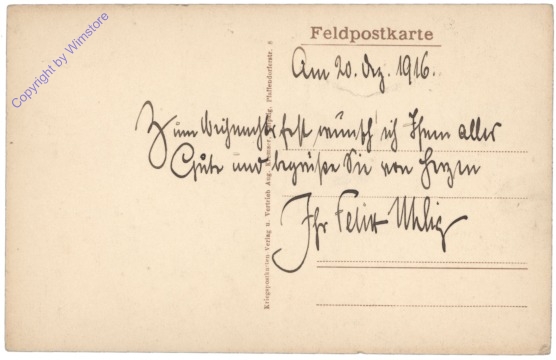 Feldpostkarte
Am 20. Dez. 1916.
Zum Weihnachtsfest wünsch ich Ihnen alles
Gute und begrüße Sie von Herzen
Ihr Felix Uhlig
Kriegspostkarten Verlag u. Vertrieb Aug. Leipzig, Pfaffendorferstr. 8
Copyright by Wimstore